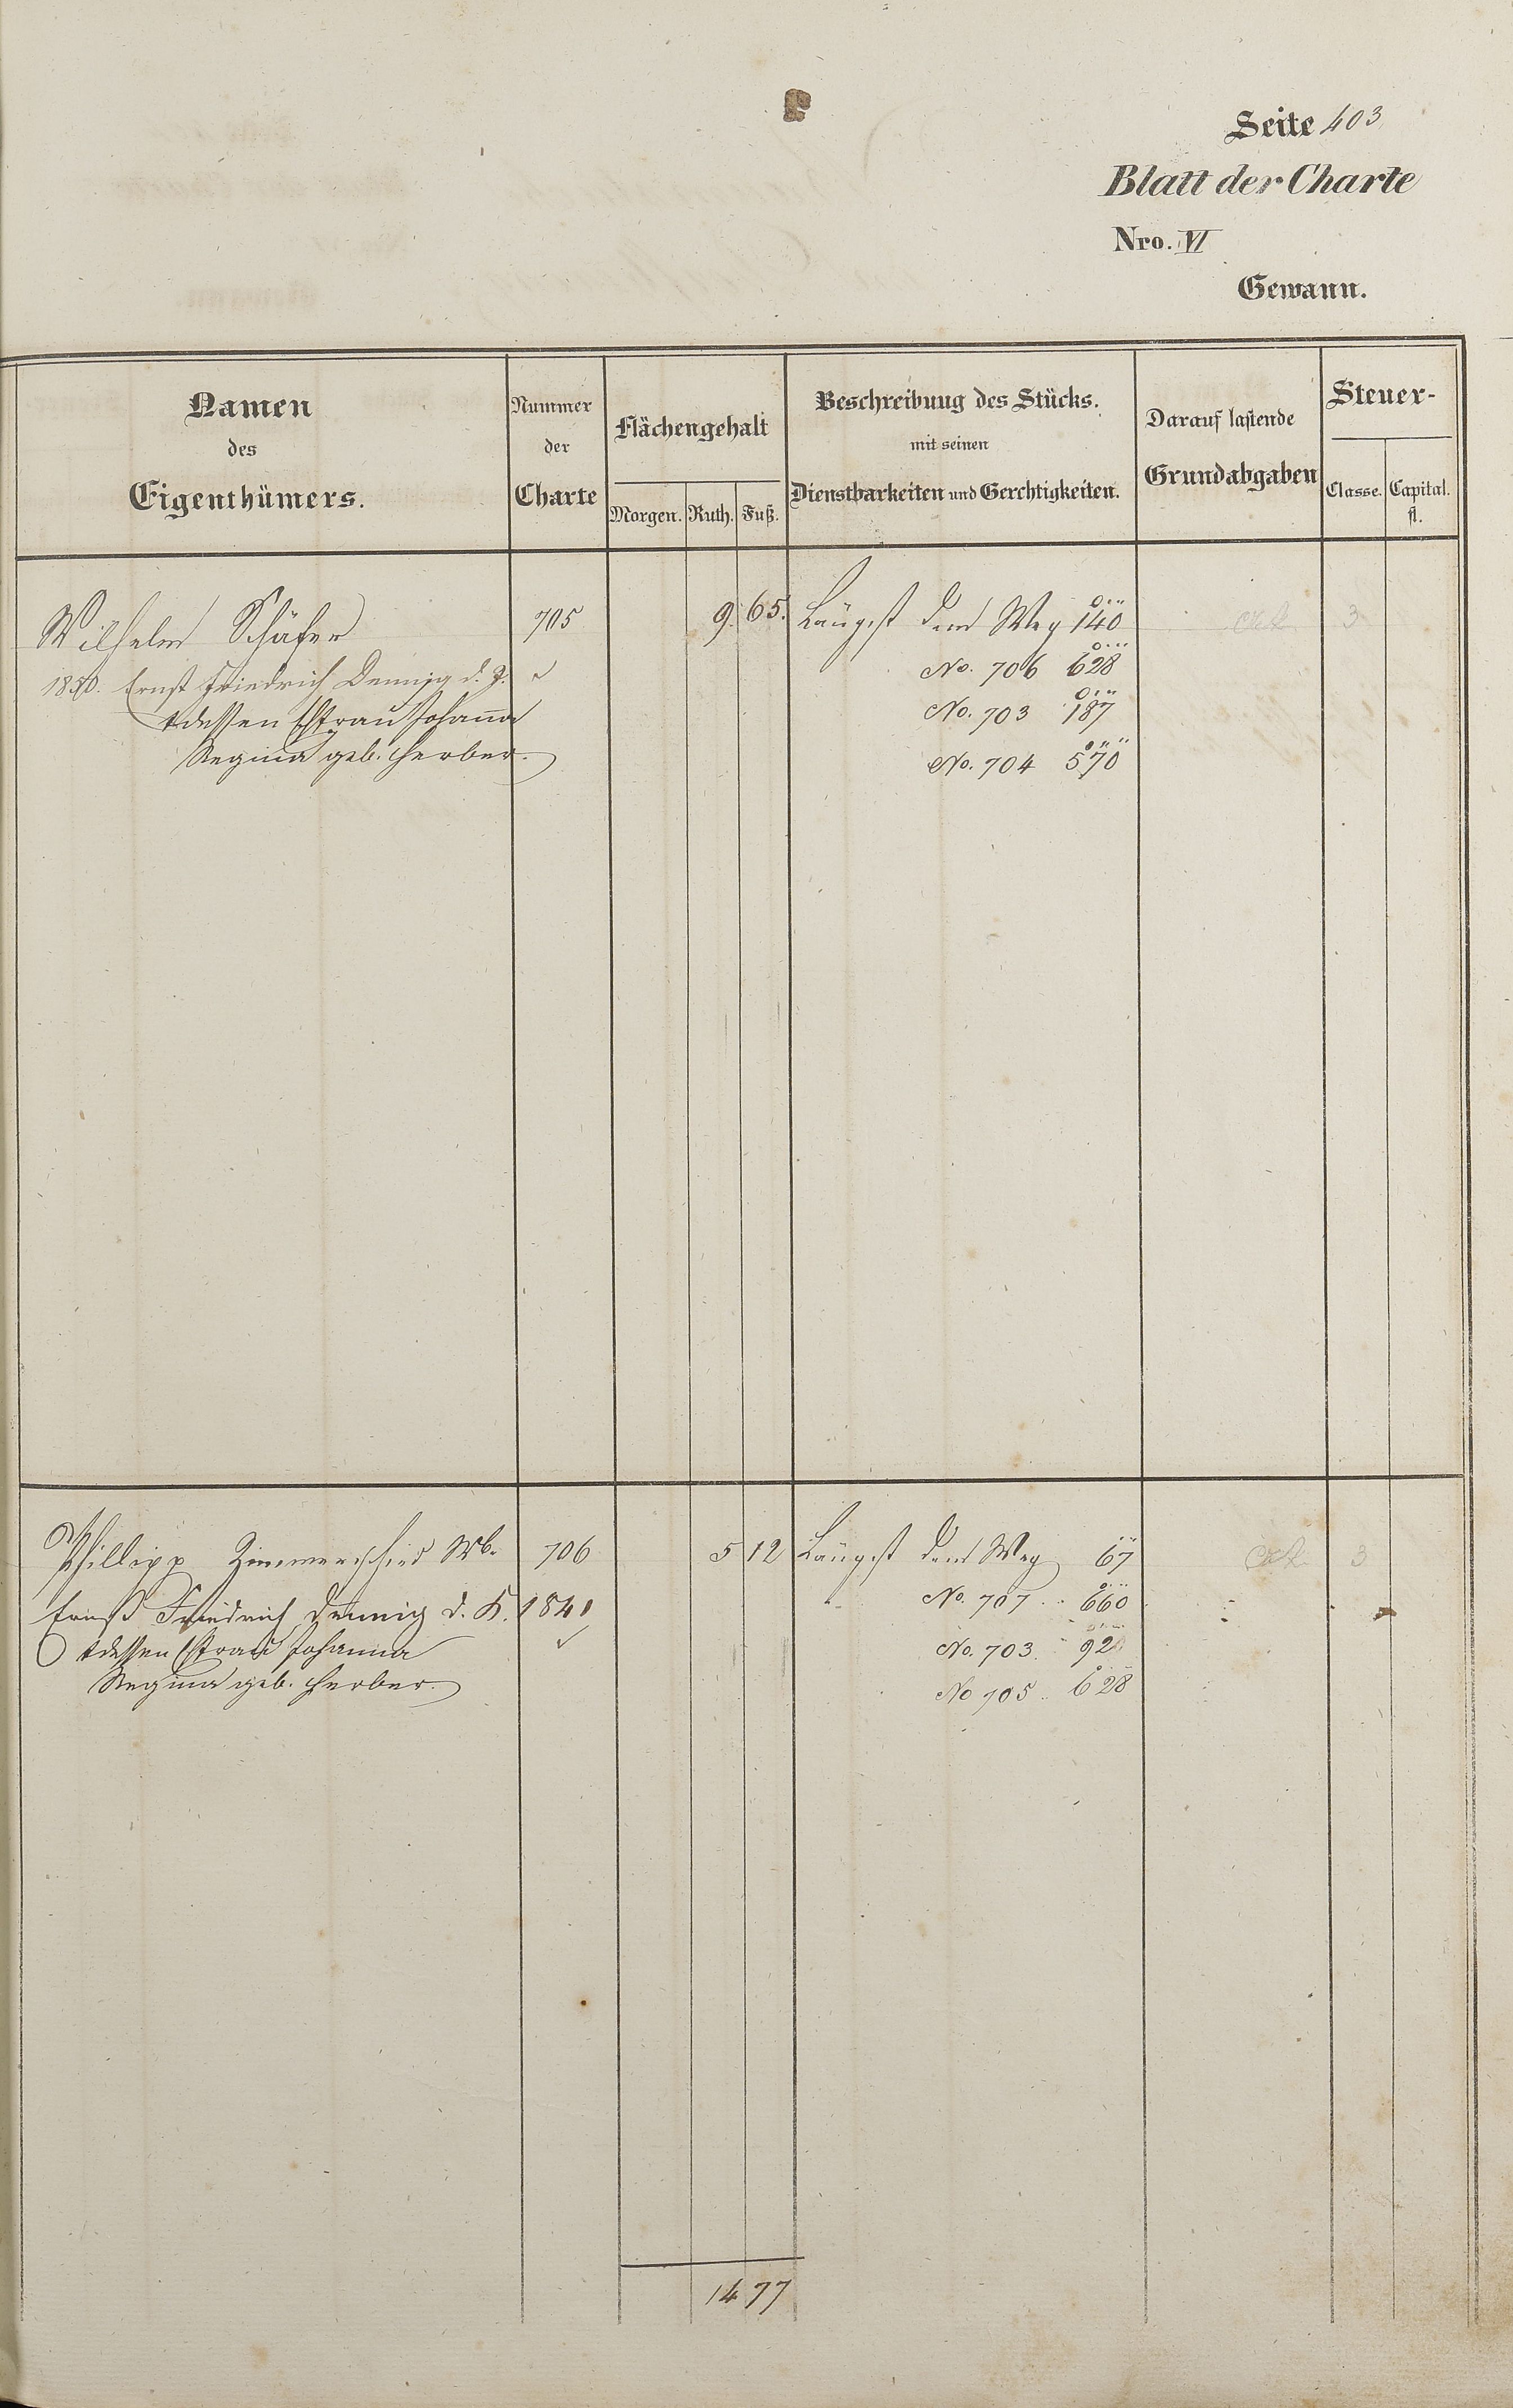 Seite 403
Blatt der Charte
Nro. VI
Gewann.
Namen des Eigenthümers.
Nummer der Charte
Flächengehalt
Morgen. Ruth. Fuß.
Beschreibung des Stücks.
mit seinen
Dienstbarkeiten und Gerchtigkeiten.
Darauf lastende
Grundabgaben
Steuer-
Classe. Capital.
fl.
Wilhelm Schäfer 705 9. 65. Längst dem Weg 140 3
Ernst Friedrich Dennig d. J. No. 706 628
& dessen Ehfrau Johanna No. 703 187
Regina geb. Herber. No. 704 570
Phillipp Zimmerschied Wb. 706 5 12 Längst dem Weg 67 3
Ernst Friedrich Dennig d. 1841 No. 707 660
& dessen Ehfrau Johanna No. 703. 92
Regina geb. Herber No 705 628
14 77